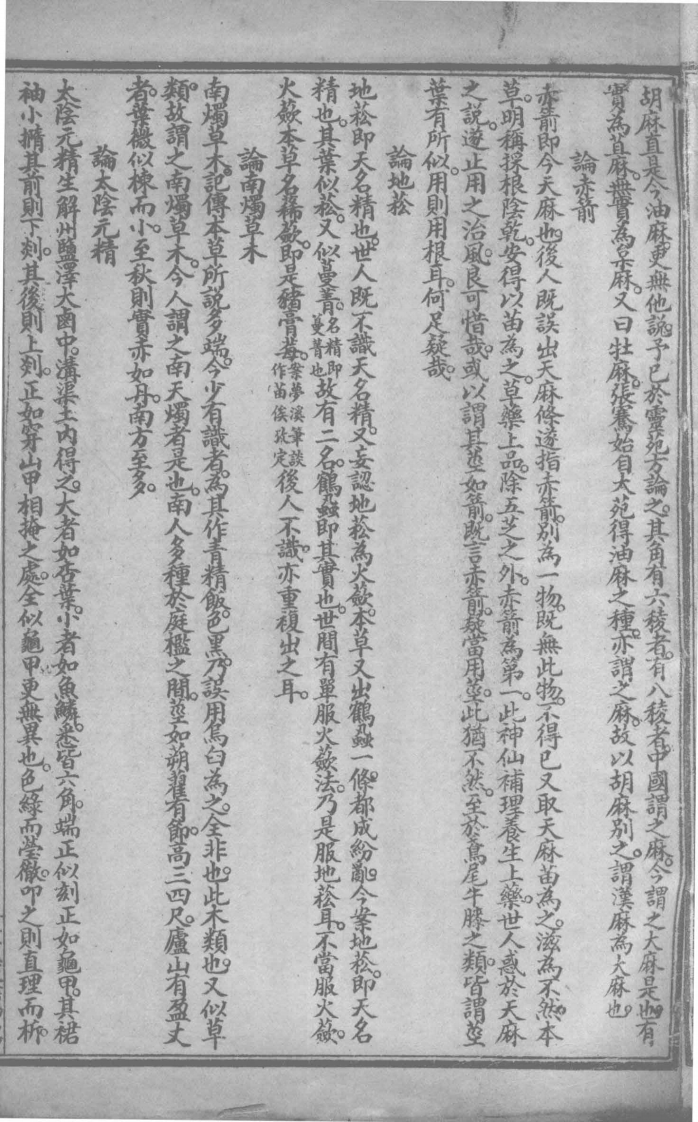 胡麻直是今油麻更無他說予已於靈苑方論之其角有六稜者有八稜者中國謂之麻今謂之大麻是也有
實為苴麻無實為枲麻又曰牡麻張騫始自大苑得油麻之種亦謂之麻故以胡麻別之謂漢麻為大麻也
論赤箭
赤箭即今天麻也後人既誤出天麻條遂指赤箭別為一物既無此物不得已又取天麻苗為之滋為不然本
草明稱採根陰乾安得以苗為之草藥上品除五芝之外赤箭為第一此神仙補理養生上藥世人惑於天麻
之說遂止用之治風良可惜哉或以謂其莖如箭既言赤箭疑當用莖此猶不然至於鳶尾牛膝之類皆謂莖
葉有所似用則用根耳何足疑哉
論地菘
地菘即天名精也世人既不識天名精又妄認地菘為火蘞本草又出鶴蝨一條都成紛亂今案地菘即天名
精也其葉似菘又似蔓菁名精即蔓菁也故有二名鶴蝨即其實也世間有單服火蘞法乃是服地菘耳不當服火蘞
火蘞本草名豨蘞即是豬膏莓案夢溪筆談作苗俟攷定後人不識亦重複出之耳
論南燭草木
南燭草木記傳本草所說多端今少有識者為其作青精飯色黑乃誤用烏臼為之全非也此木類也又似草
類故謂之南燭草木今人謂之南天燭者是也南人多種於庭檻之間莖如朔藋有節高三四尺廬山有盈丈
者葉微似楝而小至秋則實赤如丹南方至多
論太陰元精
太陰元精生解州鹽澤大鹵中溝渠土內得之大者如杏葉小者如魚鱗悉皆六角端正似刻正如龜甲其裙
袖小橢其前則下剡其後則上剡正如穿山甲相掩之處全似龜甲更無異也色綠而瑩徹叩之則直理而柝